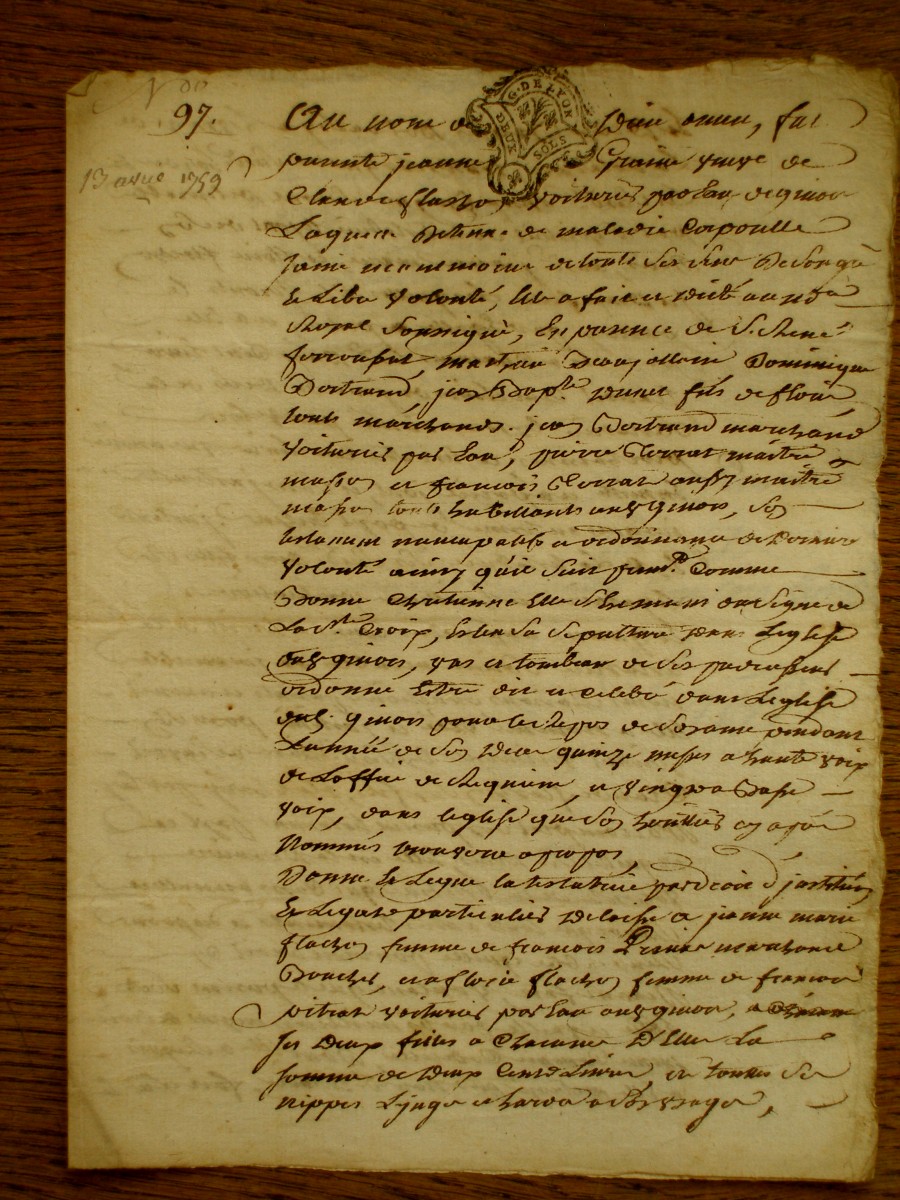 97.
13 avril 1759
G. DE LYON
DEUX SOLS
Au nom de Dieu amen, fut
presente jeanne veuve de
Claude flachon voiturier par eau de givors
Laquelle detenue de maladie corporelle
saine neanmoins de touts ses sens De son gré
et Libre volonté, Elle a fait et dicté au no.re
Royal soussigné, En presence de S.r René
Dominique
Bertrand, jean Bap.te fils de
touts marchands. jean Bertrand marchand
voiturier par Eau, pierre maitre
masson et francois aussy maitre
masson touts habittants aud. givors, son
testament nuncupatif et ordonnance de Derniere
volonté ainsy qu'il suit prem.t Comme
Bonne Chretienne Elle s'est munie du signe de
La S.te Croix, Eslu sa sepulture dans L'eglise
dud. givors, vas et tombeau de ses predecesseurs
ordonne Estre dit et Celebré dans L'eglise
dud. givors pour le Repos de son ame pendant
L'année de son Deces quinze messes a haute voix
de L'office de Requiem, et vingt a Basse
voix, dans l'eglise que son heritier cy apres
Nommés trouvera a propos,
Donne et Legue la testatrice par droit d'institution
et Legats particuliers Delaisse a jeanne marie
flachon femme de francois marchand
Boucher, et a flachon femme de francois
pitrat voiturier par Eau aud. givors,
ses deux filles a Chacune D'Elle La
somme de Deux Cents Livres, et toutes ses
nippes Linges et hardes a son usage,